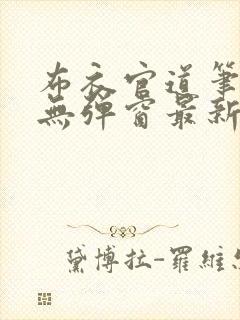 布衣官道筆
無彈窗最新
黛博拉-羅維